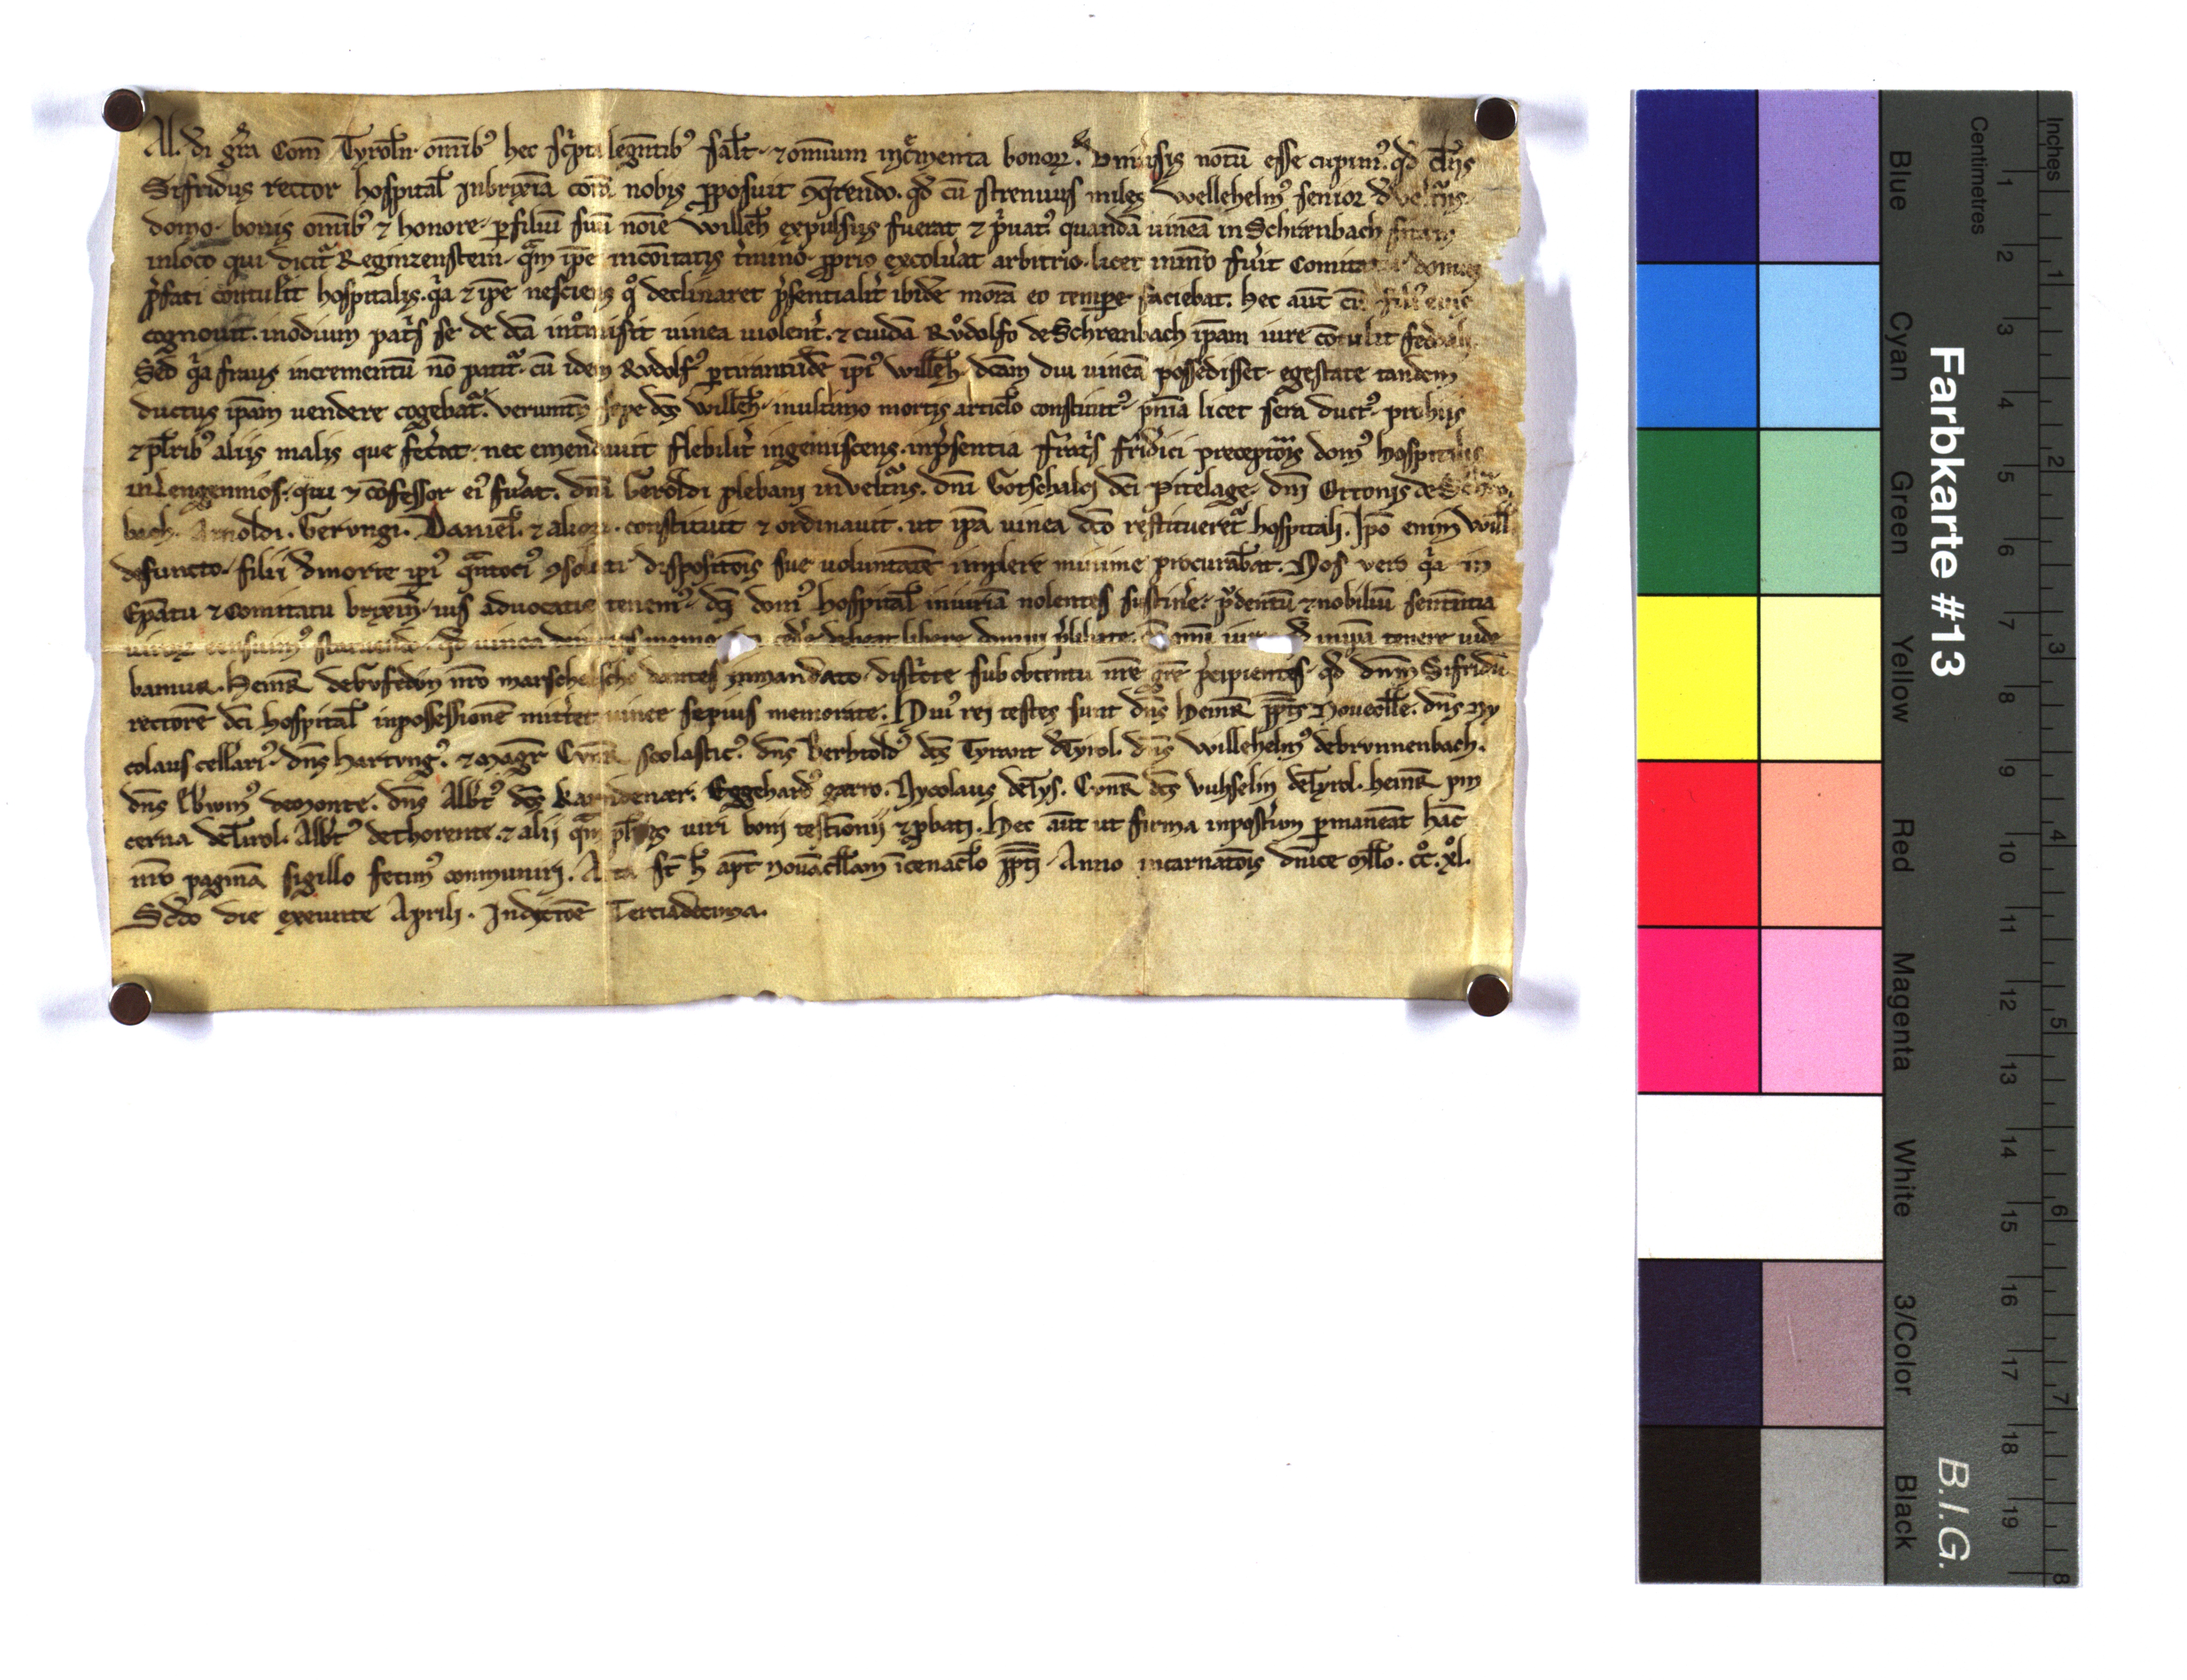 Al. di gr̄a Com̄ Tyroln̄. om̄ib᷒ hec sc̍pta legentib᷒ sal̄t. ⁊ omnium inc̍menta bonoꝝ. notū esse cupim᷒. qd̄ dn̄s
Sifridus rector hospital̄ inbrixīa corā nobis ꝓposuit ꝯq̄rendo. qd̄ cū strenuus miles Wellehelm᷒ senior
domo. bonis om̄ib᷒ ⁊ honore. ꝑ filiū suū noīe Willeh̄ expulsus fuerat ⁊ p̍uat᷒. quandā uineā in Schrēnbach sitam
inloco qui dicit̄ Reginzenstein. qm̄ ip̄e incōitatis t̄mino. ꝓprio excolu̍at arbitrio. licet minīo fu̍it Comitat
p̍fati contulit hospitalis. q̍a ⁊ ip̄e nesciens q̊ declinaret p̍sentialit̍ ibidē morā eo tempe faciebat. hec aut̄ cū
cognouit. inodium pat̍s se de dc̄a int̊misit uinea uiolent̍. ⁊ cuidā Rv̊dolfo de Schrenbach ip̄am iure cōtulit
Sed q̍a fraus incrementū nō patit̄. cū idem Rvdolf᷒ ip̄i᷒ Willeh̄. dc̄am diu uineā possedisset. egestate tandem
ductus ip̄am uendere cogebat̄. uerumt̄n sepe dc̄s Willeh̄. inultimo mortis artic̄lo constitut᷒. pn̄ia licet sera duct᷒. pro hijs
⁊ pl̄rib᷒ aliis malis que fec̍at. nec emendauit flebilit̍ ingemiscens. inp̍sentia fr̄at̍s frid̍ici preceptor̄is dom᷒ hospitalis
inLengemos. qui ⁊ cōfessor ei᷒ fu̍at. dn̄i Geroldi plebani inveltu̍ns. dn̄i Gotschalci dc̄i Pitelage. dn̄i Ottonis de
bach. Arnoldi. Gerungi. Daniel̄. ⁊ alioꝝ. constituit ⁊ ordinauit. ut ip̄a uinea dc̄o restitueret̄ hospitali. Ip̄o enim Will
defuncto. filii d̍ morte ip̄i᷒ disposit̄ois sue uoluntatē implere minime procurabat. Nos vero q̍a in
Ep̄atu ⁊ Comitatu brixin̄. ius aduocatie tenem᷒. dc̄s dom᷒ hospital̄ iniuriā nolentes sustin̍e. p̍dentū ⁊ nobiliū sententia
uiroꝝ qd̄ uinea
bamur. Heinr̄ deGvfedvn nr̄o marschalscho dantes inmandato. distr̍cte sub obtentu nr̄e gr̄e p̍cipientes. qd̄ dn̄m Sifridū
rectorē dc̄i hospital̄ inpossessionē mitt̍et uinee sepius memorate. Hui᷒ rei testes sunt dn̄s Heinr̄ pp̄ts Nouecell̄e. dn̄s Ny
colaus cellari᷒. dn̄s Hartvng᷒. ⁊ magr̄ Cvnr̄ scolastic᷒. dn̄s Berhtold᷒ dc̄s Tyrant d̍Tyrol. dn̄s Willehelm᷒ debrvnnenbach.
dn̄s Ebwin᷒ demonte. dn̄s Alb̄t᷒ dc̄s Eggehard᷒ gatto. Nycolaus d̍Tys. Cvnr̄ dc̄s vuhselin d̍Tyrol. heinr̄ pin
cerna d̍Tirol. Alb̄t᷒ dethorente. ⁊ alii qm̄ pl̄res uiri boni testīonij ⁊ ꝓbati. Hec aut̄ ut firma inpost̍um ꝑmaneāt hāc
nr̄o paginā sigillo fecim᷒ communiri. Acta st̄ h̄ apt̄ Nouācellam īcenac̄lo pp̄ti. Anno incarnat̄ois dn̄ice mill̄o. cc̊. xl.
Sc̄do die exeunte Aprili. Indyctiōe Terciadecima.
Farbkarte #13
B.I.G.
Centimetres
Inches
Blue
Cyan
Green
Yellow
Red
Magenta
White
3/Color
Black
1 2 3 4 5 6 7 8 9 10 11 12 13 14 15 16 17 18 19
1 2 3 4 5 6 7 8